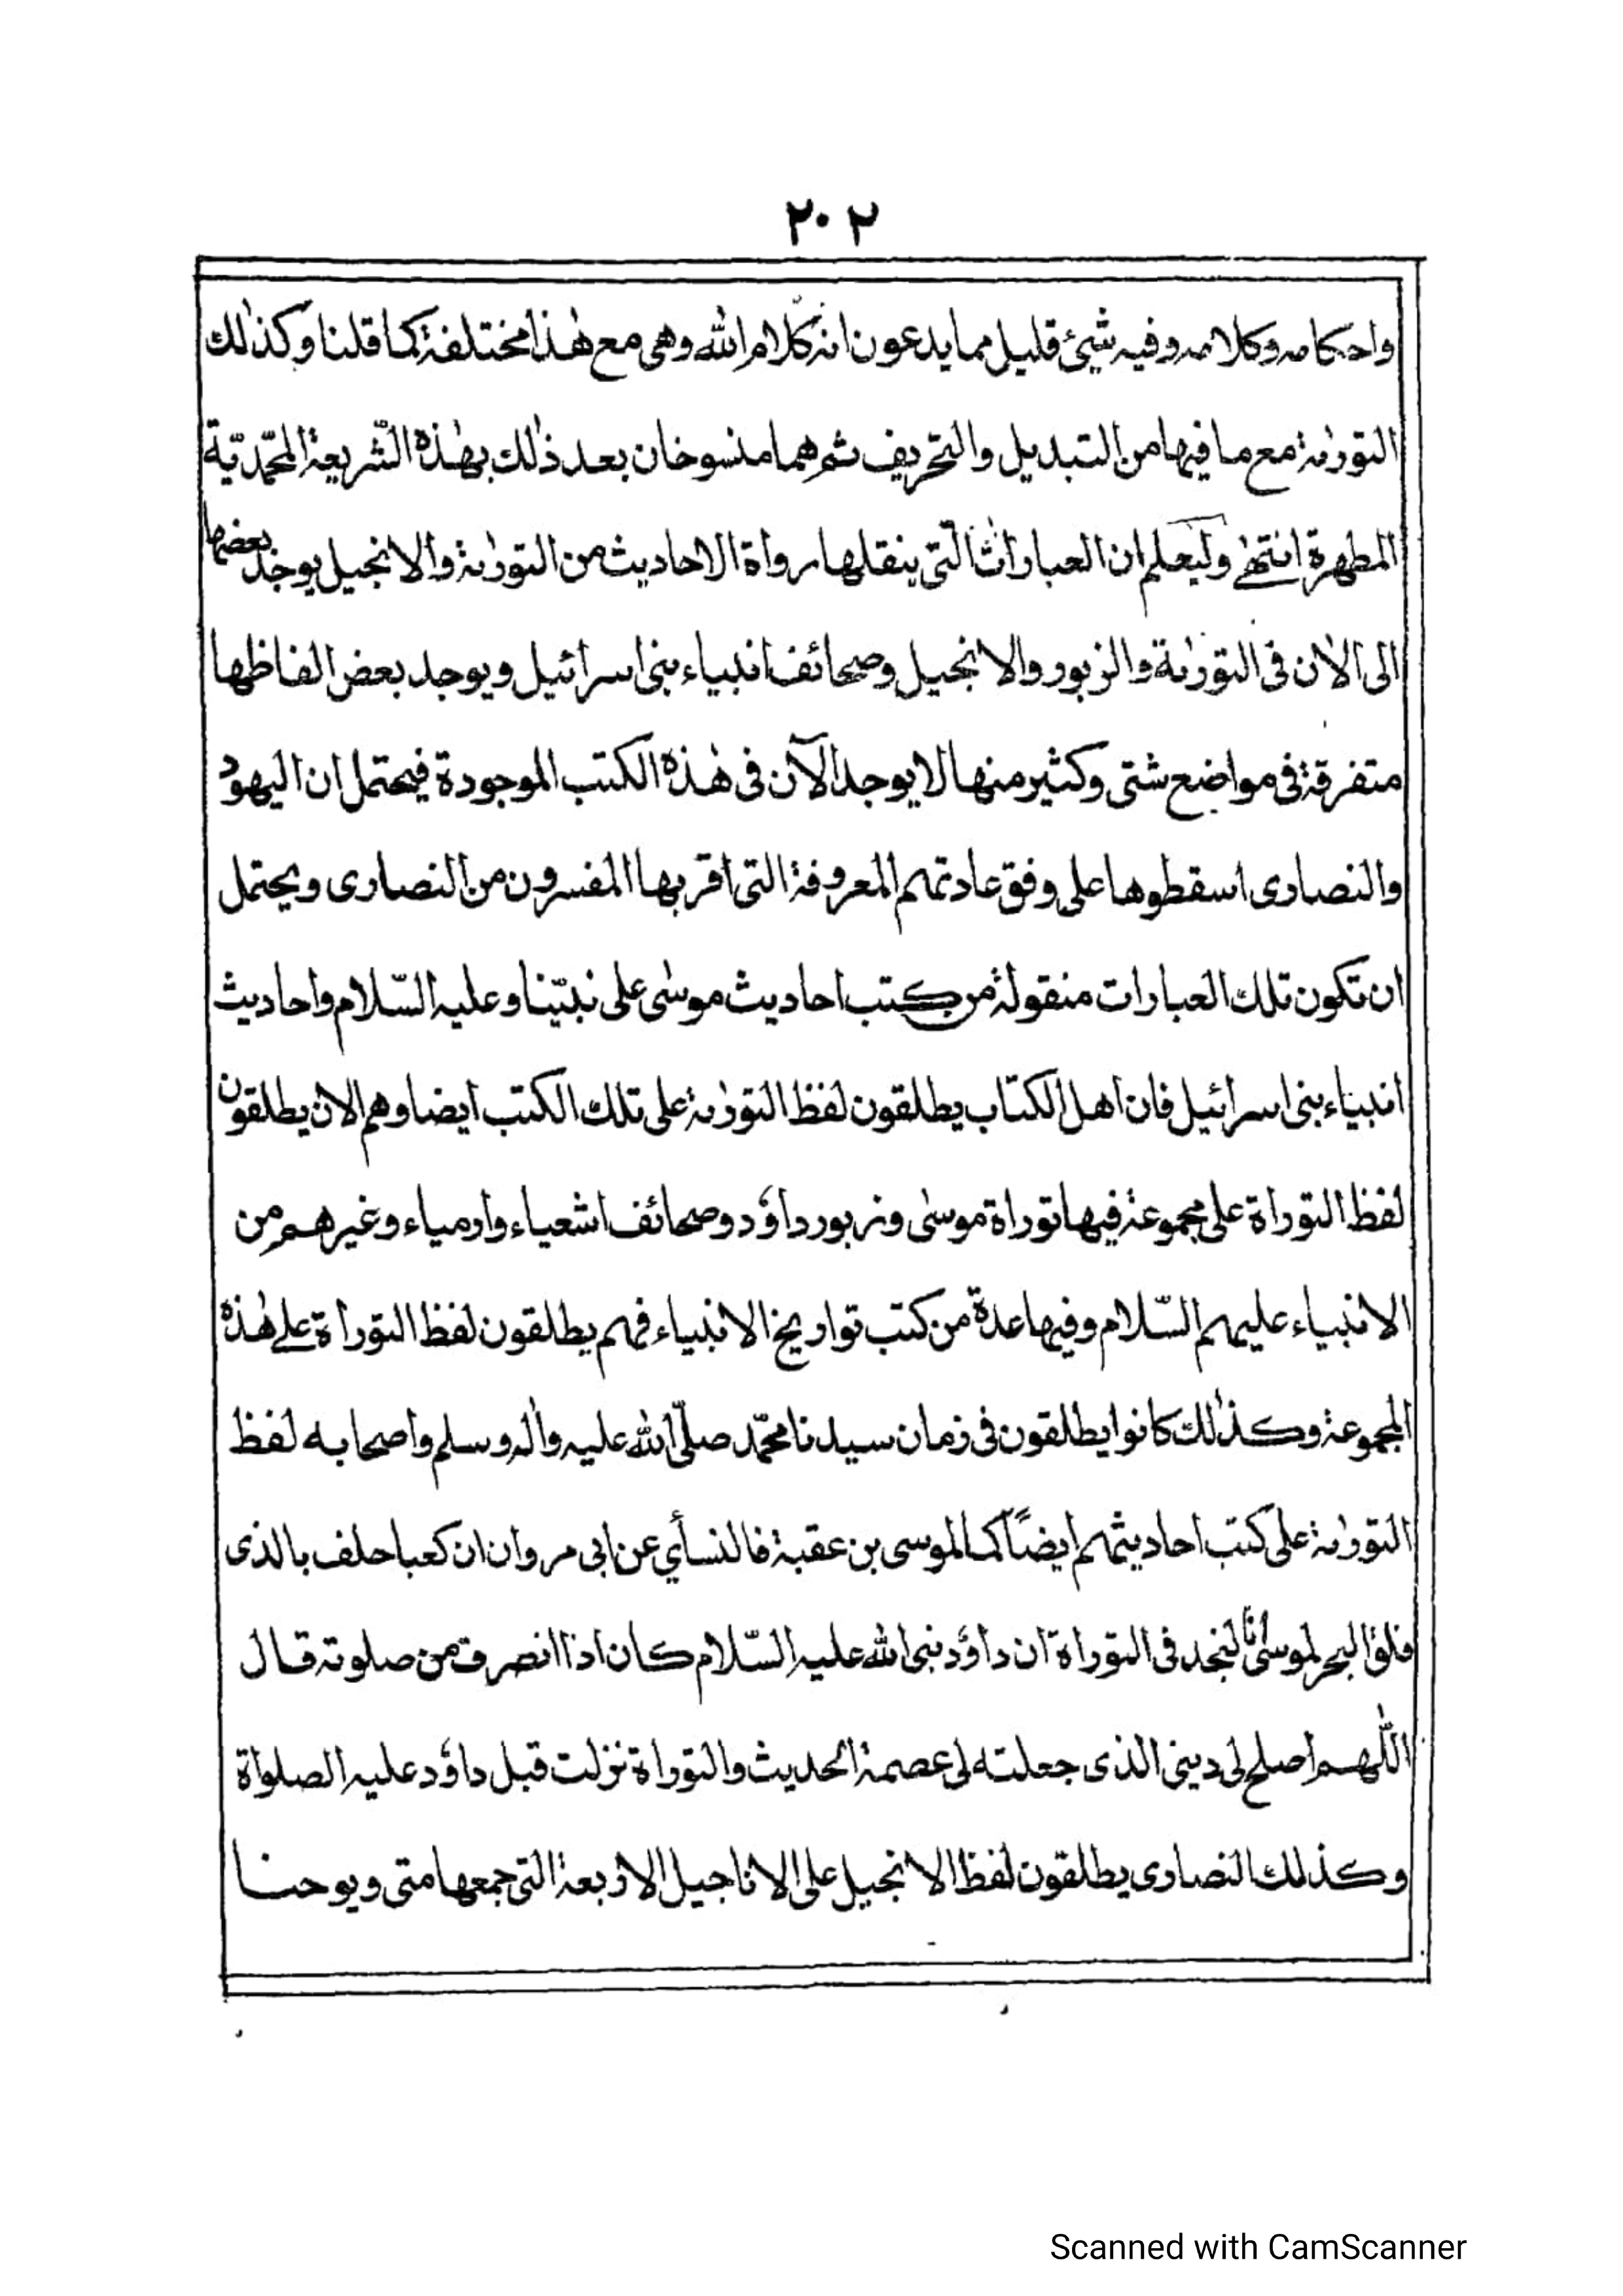 ٢٠٢
واحكامه وكلامه وفيه شيئ قليل مما يدعون انه كلام الله وهى مع هٰذا مختلفة كما قلنا وكذٰلك
التورٰىة مع ما فيها من التبديل والتحريف ثم هما منسوخان بعد ذٰلك بهٰذه الشّريعة المحمّديّة
المطهرة انتهٰى وليعلم ان العبارات الّتى ينقلها رواة الاحاديث من التورٰىة والانجيل يوجد بعضها
الى الاٰن فى التورٰىة والزبور والانجيل وصحائف انبياء بنى اسرائيل ويوجد بعض الفاظها
متفرقة فى مواضع شتى وكثير منها لا يوجد الآن فى هٰذه الكتب الموجودة فيحتمل ان اليهود
والنصارى اسقطوها على وفق عادتهم المعروفة التى اقر بها المفسرون من النصارى ويحتمل
ان تكون تلك العبارات منقولة من كتب احاديث موسٰى على نبيّنا وعليه السّلام واحاديث
انبياء بنى اسرائيل فان اهل الكتاب يطلقون لفظ التورٰىة على تلك الكتب ايضا وهم الاٰن يطلقون
لفظ التوراة على مجموعة فيها توراة موسٰى وزبور داؤد وصحائف اشعياء وارمياء وغيرهم من
الانبياء عليهم السّلام وفيها عدة من كتب تواريخ الانبياء فهم يطلقون لفظ التوراة على هٰذه
المجموعة وكذٰلك كانوا يطلقون فى زمان سيدنا محمّد صلّى الله عليه واٰله وسلم واصحابه لفظ
التورٰىة على كتب احاديثهم ايضًا كما لموسى بن عقبة فالنسأي عن ابى مروان ان كعبا حلف بالذى
فلق البحر لموسٰى انّا لنجد فى التوراة ان داؤد نبى الله عليه السّلام كان اذا انصرف من صلوته قال
اللّٰهم اصلح لى دينى الذى جعلته لى عصمة الحديث والتوراة نزلت قبل داؤد عليه الصلواة
وكذلك النصارى يطلقون لفظ الانجيل على الاناجيل الاربعة التى جمعها متى ويوحنا
Scanned with CamScanner